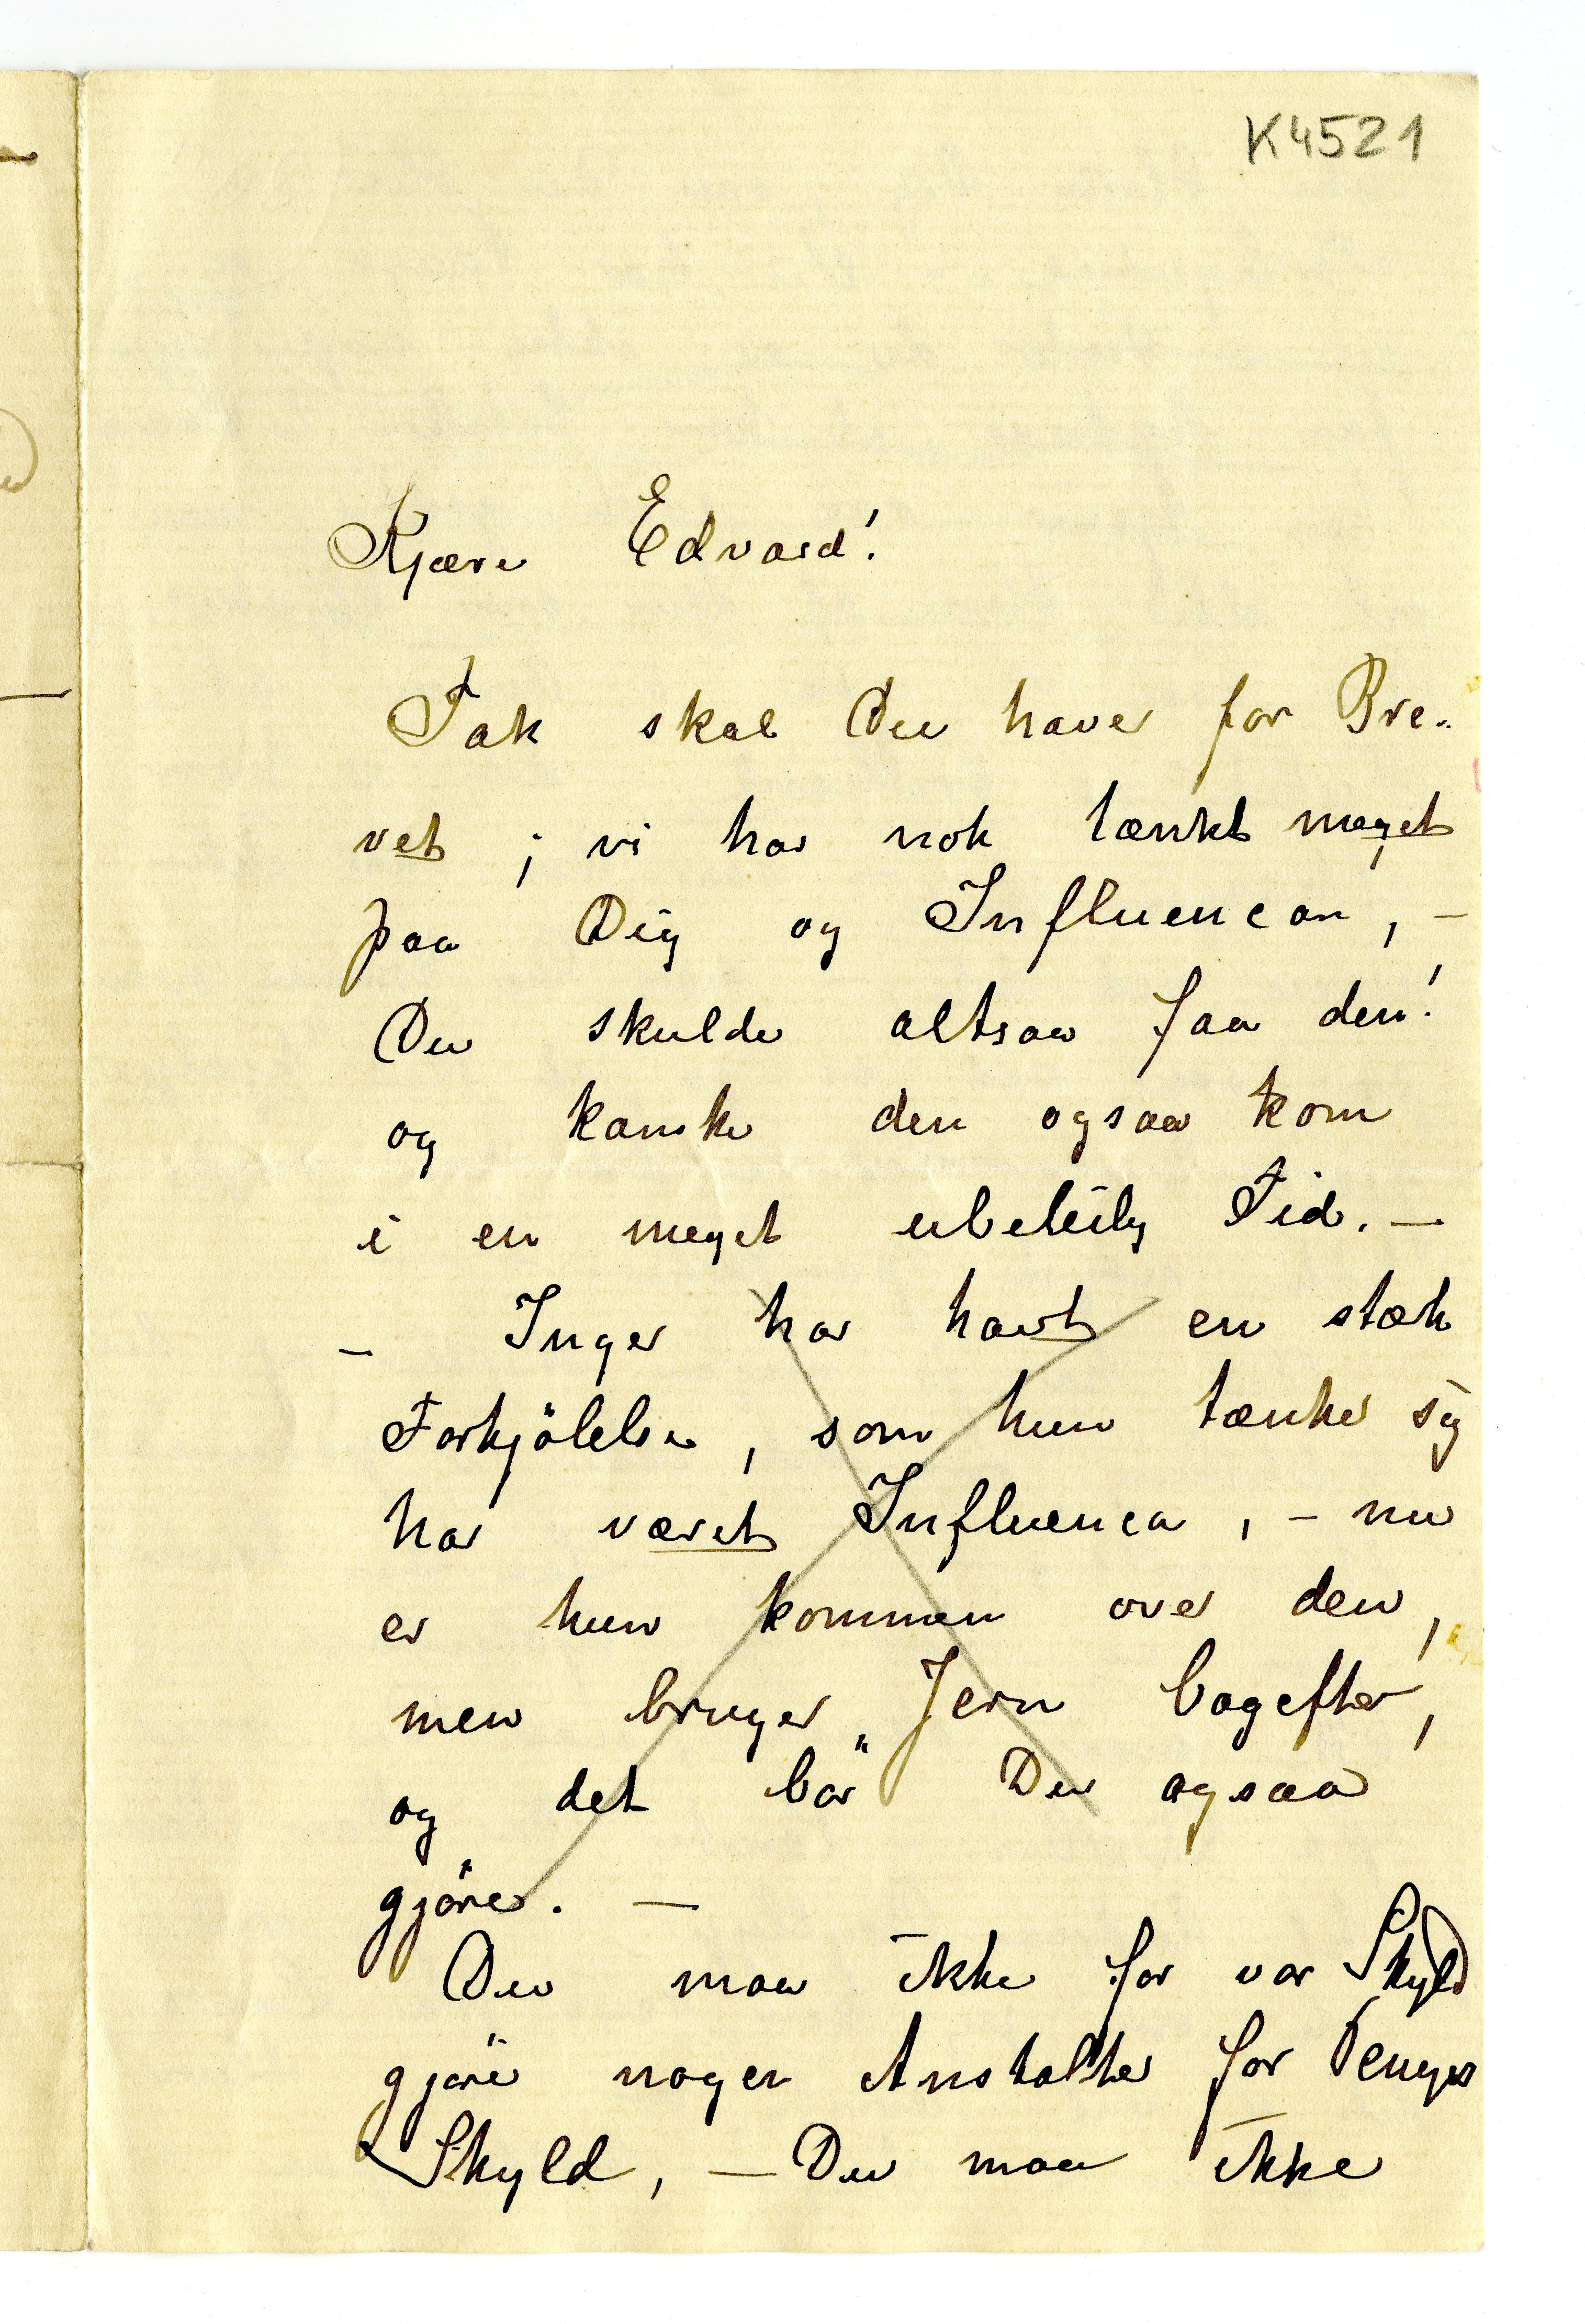 K4521
Kjære Edvard!
Tak skal Du have for Bre-
vet; vi har nok tænkt meget
paa Dig og Influencan, -
Du skulde altsaa faa den!
og kanske den ogsaa kom
i en meget ubeleilig Tid. —
— Inger har havt en stæk
Forkjölelse, som hun tænker sig
har været Influenca, - nu
er hun kommen over den,
men bruger Jern bagefter,
og det bör Du ogsaa
gjöre. —
Du maa ikke for vor Skyld
gjöre nogen Anstalter for Penges
Skyld, — Du maa ikke